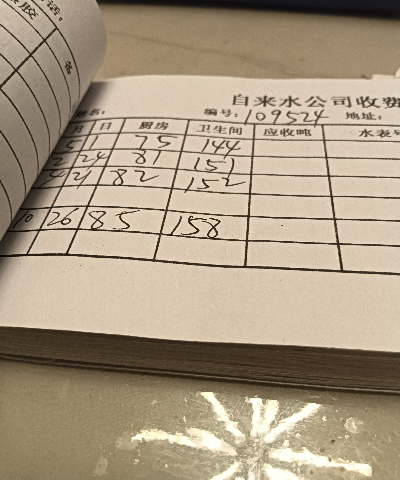 话:
自来水公司收费
姓名: 编号: 109524 地址:
月 日 厨房 卫生间 应收吨 水表
5 1 75 144
2 24 81 151
4 21 82 152
10 26 85 158